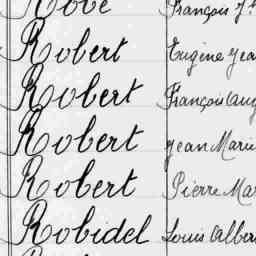 Robe François J
Robert Eugène Jea
Robert François Aug
Robert Jean Marie
Robert Pierre Mar
Robidel Louis Alber